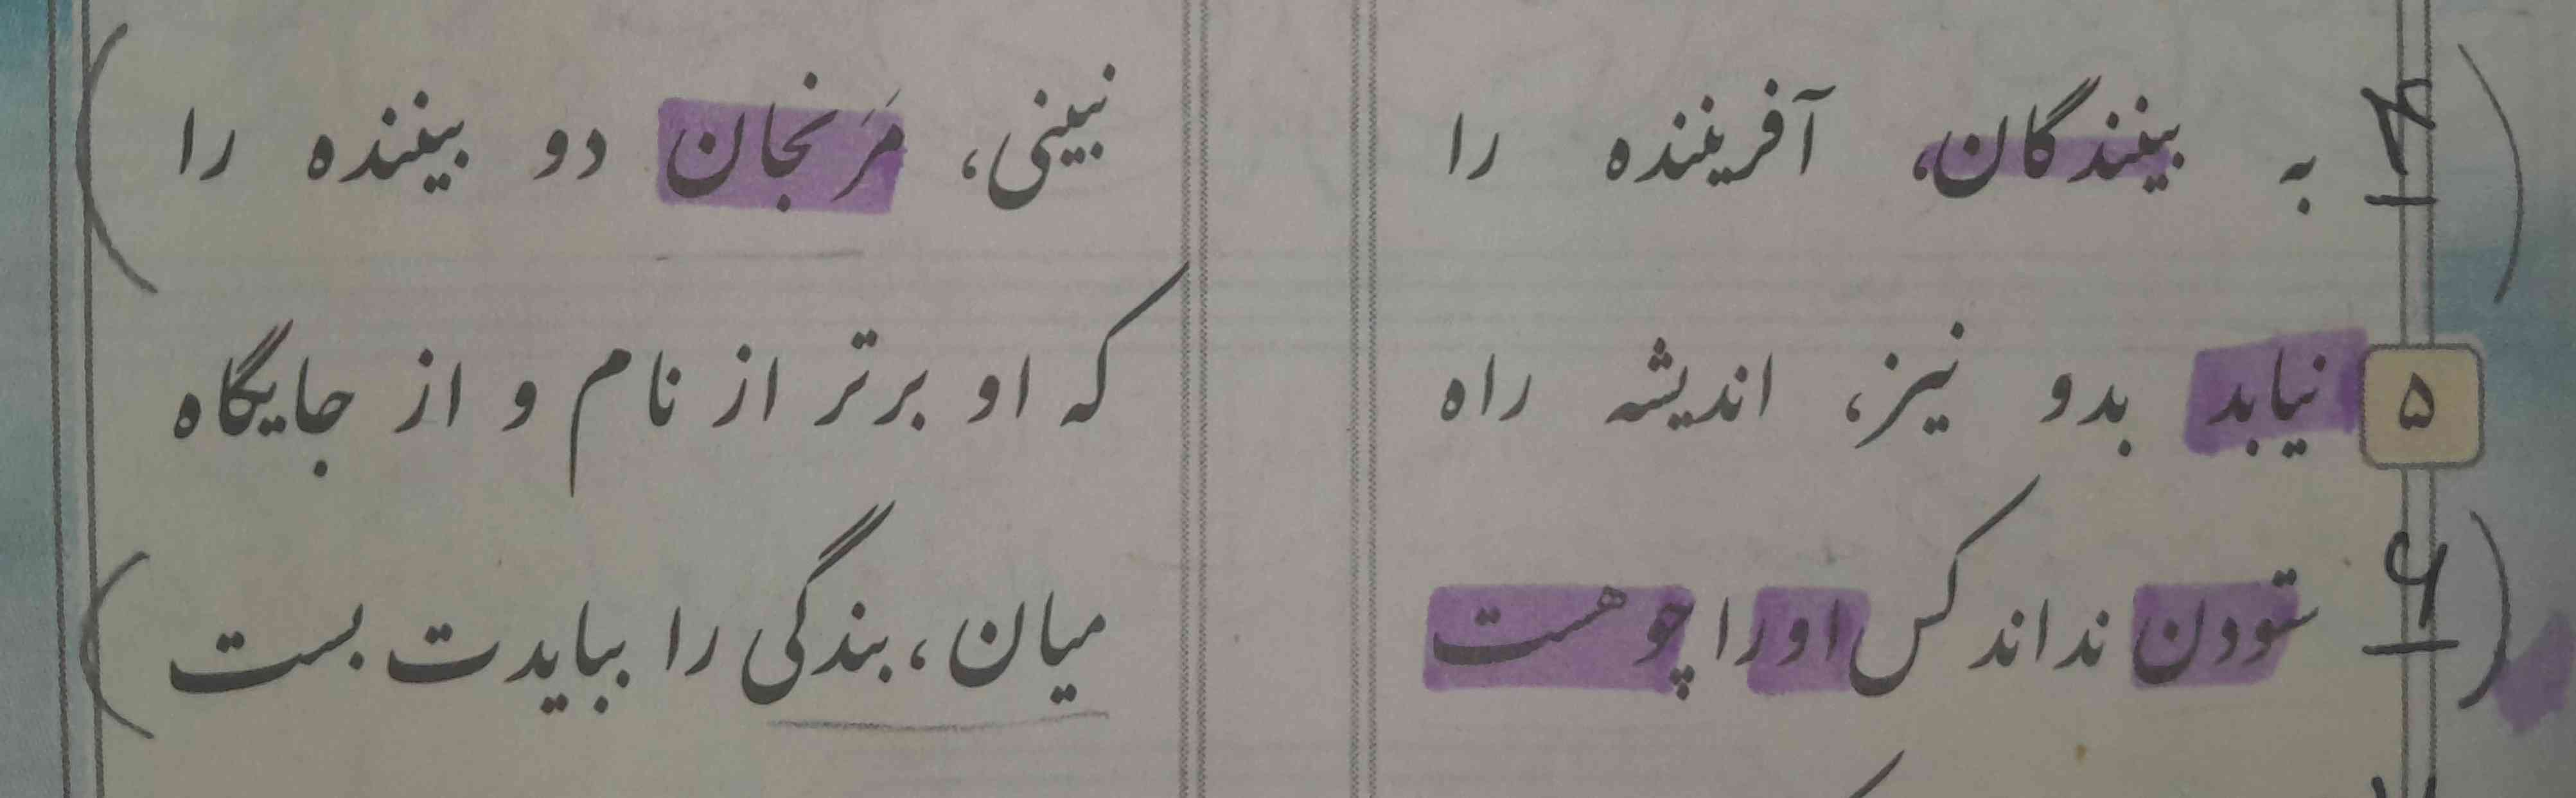 ۴ به بینندگان، آفریننده را نبینی، مَرنجان دو بیننده را
۵ نیابد بدو نیز، اندیشه راه که او برتر از نام و از جایگاه
۶ ستودن نداند کس او را چو هست میان، بندگی را ببایدت بست